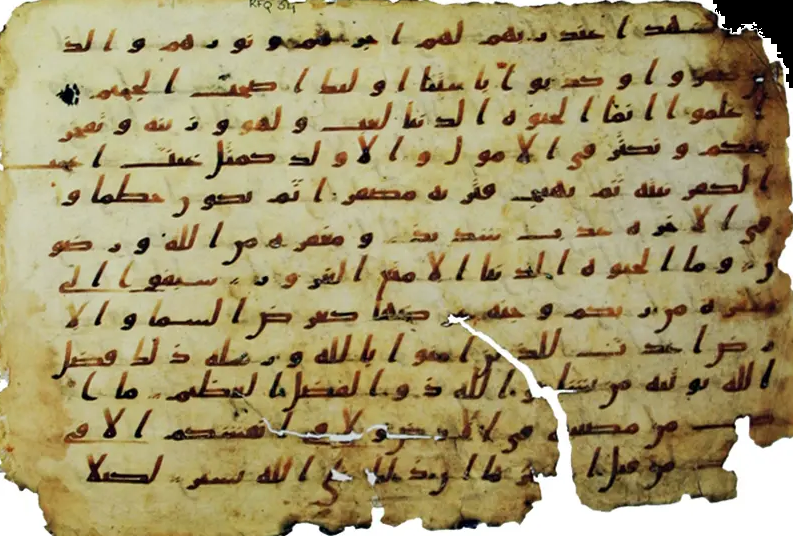 KFQ 54
لشهدا عند ربهم لهم اجرهم ونورهم والذ
ين كفروا وكذبوا بايتنا اولئك اصحب الجحيم
اعلموا انما الحيوة الدنيا لعب ولهو وزينة وتفخر
بينكم وتكثر في الامول والاولد كمثل غيث اعجب
الكفر نبته ثم يهيج فتريه مصفرا ثم يكون حطما و
في الاخرة عذب شديد ومغفرة من الله ورضو
ن وما الحيوة الدنيا الا متع الغرور سبقوا الى
مغفرة من ربكم وجنة عرضها كعرض السما والا
رض اعدت للذين امنوا بالله ورسله ذلك فضل
الله يوتيه من يشا والله ذو الفضل العظيم ما ا
صب من مصيبة في الارض ولا في انفسكم الا في
من قبل ان ها ان ذلك على الله يسير لكيلا